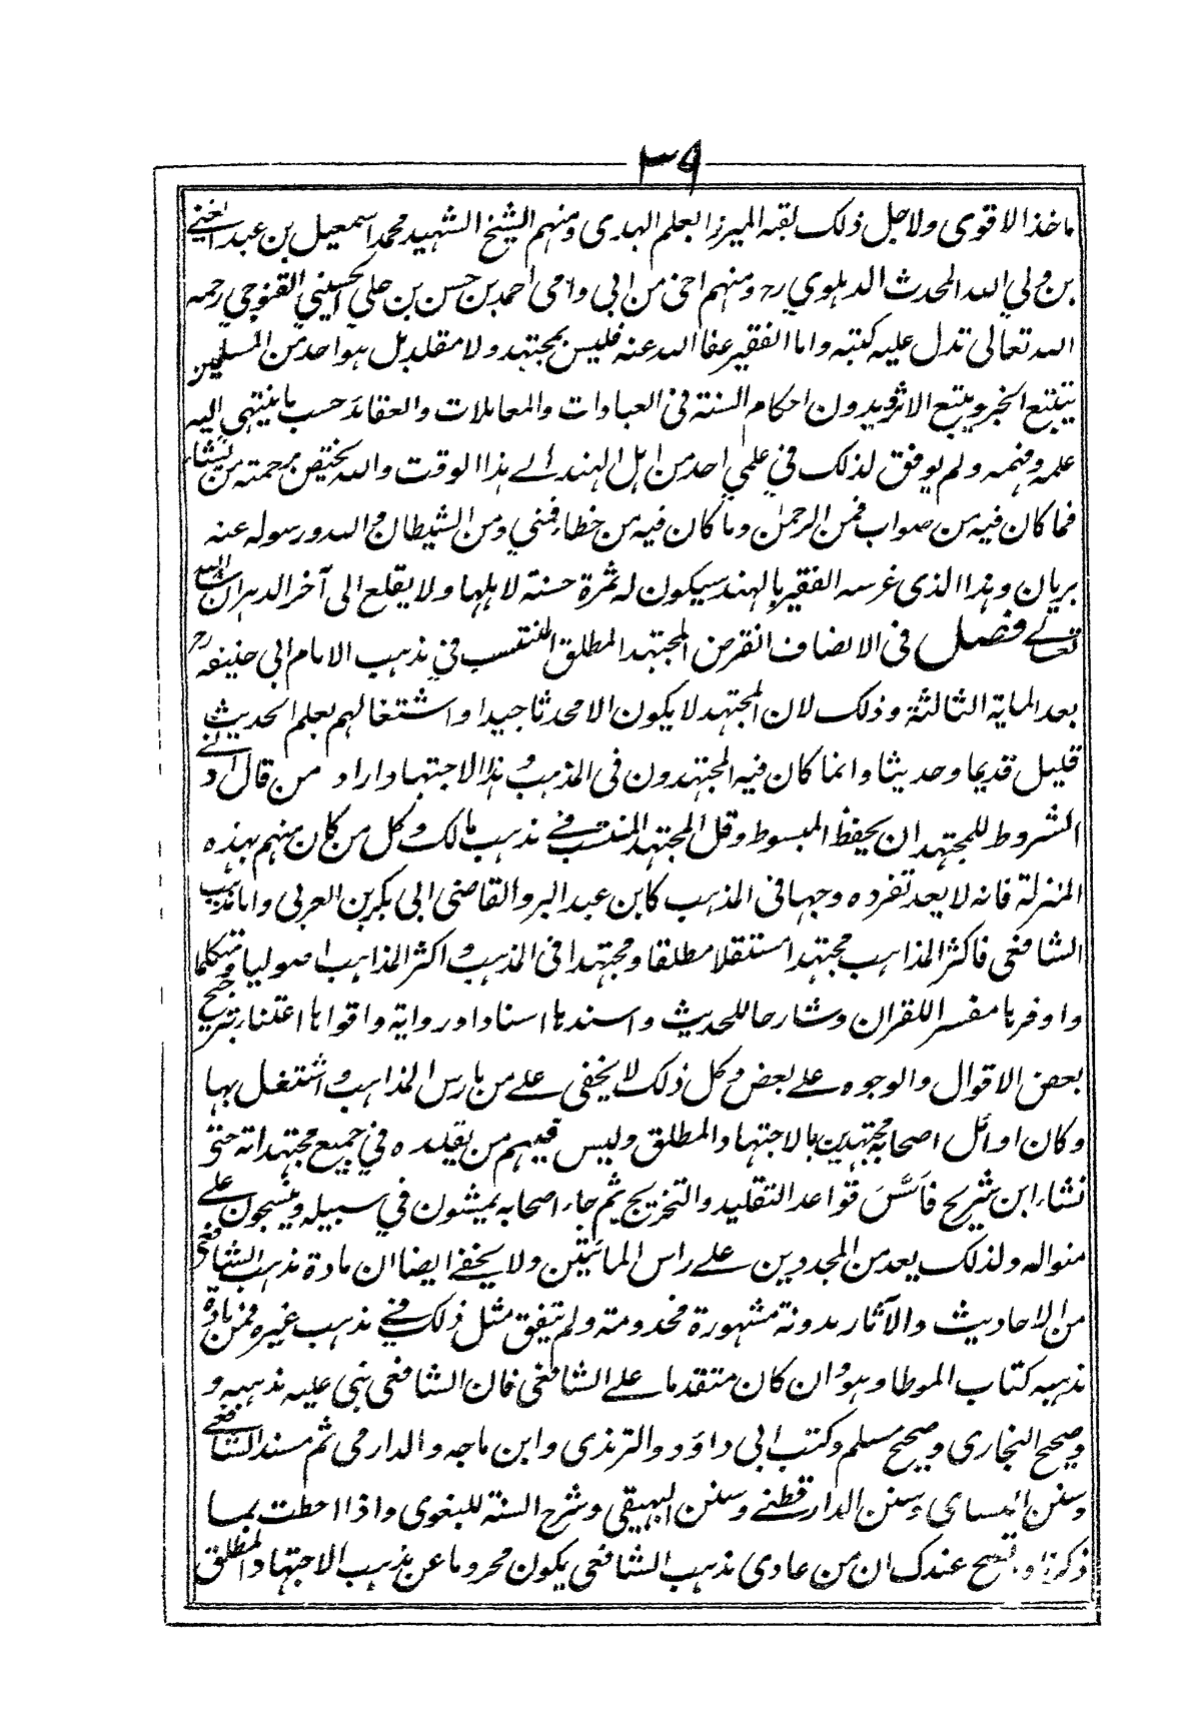 ٣٩
ماخذا الاقوى ولاجل ذلك لقبه الميرزا بعلم الهدى ومنهم الشيخ الشهيد محمد اسمعيل بن عبد الغني
بن ولي الله المحدث الدهلوي رح ومنهم اخي من ابي وامي احمد بن حسن بن علي الحسيني القنوجي رحمه
الله تعالى تدل عليه كتبه واما الفقير عفا الله عنه فليس بمجتهد ولا مقلد بل هو احد من المسلمين
يتبع الخبر ويتبع الاثر ويدون احكام السنة في العبادات والمعاملات والعقائد حسب ما ينتهي اليه
علمه وفهمه ولم يوفق لذلك في علمي احد من اهل الهند الے هذا الوقت والله يختص برحمته من يشاء
فما كان فيه من صواب فمن الرحمن وما كان فيه من خطاء فمني ومن الشيطان والله ورسوله عنه
بريان وهذا الذي غرسه الفقير بالهند سيكون له ثمرة حسنة لاهلها ولا يقلع الى آخر الدهر ان شاء الله
تعالے فصل في الانصاف انقرض المجتهد المطلق المنتسب في مذهب الامام ابي حنيفه رح
بعد الماية الثالثة وذلك لان المجتهد لا يكون الا محدثا جيدا واشتغالهم بعلم الحديث
قليل قديما وحديثا وانما كان فيه المجتهدون في المذهب وهذا الاجتهاد اراد من قال ادنے
الشروط للمجتهد ان يحفظ المبسوط وقل المجتهد المنتسب فے مذهب مالك وكل من كان منهم بهذه
المنزلة فانه لا يعد تفرده وجها في المذهب كابن عبد البر والقاضي ابي بكر بن العربي واما مذهب
الشافعي فاكثر المذاهب مجتهدا مستقلا مطلقا ومجتهدا في المذهب واكثر المذاهب اصوليا ومتكلما
واوفرها مفسرا للقران وشارحا للحديث واسندها اسنادا ورواية واقواها اعتناء بترجيح
بعض الاقوال والوجوه علے بعض وكل ذلك لا يخفى علے من مارس المذاهب واشتغل بها
وكان اوائل اصحابه مجتهدين بالاجتهاد المطلق وليس فيهم من يقلده في جميع مجتهداته حتى
نشاء ابن شريح فاَسَّسَ قواعد التقليد والتخريج ثم جاء اصحابه يمشون في سبيله وينسجون علے
منواله ولذلك يعد من المجددين علے راس المائتين ولا يخفے ايضا ان مادة مذهب الشافعي
من الاحاديث والآثار مدونة مشهورة مخدومة ولم يتفق مثل ذلك فے مذهب غيره فمن مادة
مذهبه كتاب الموطا وهو وان كان متقدما علے الشافعي فان الشافعي بنى عليه مذهبه و
وصحيح البخاري وصحيح مسلم وكتب ابي داؤد والترمذي وابن ماجه والدارمي ثم مسند الشافعے
وسنن النساي وسنن الدارقطنے وسنن البيهقي وشرح السنة للبغوي واذا احطت بما
ذكرناه اتضح عندك ان من عادى مذهب الشافعي يكون محروما عن مذهب الاجتهاد المطلق